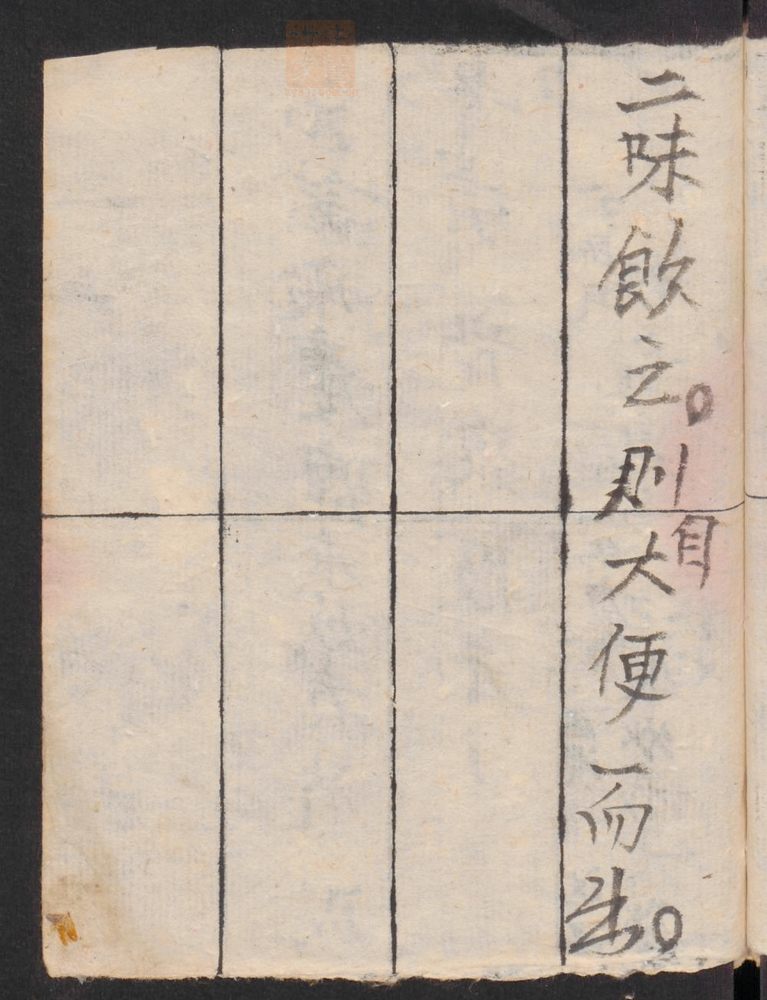 二味飲之。則自大便而出。